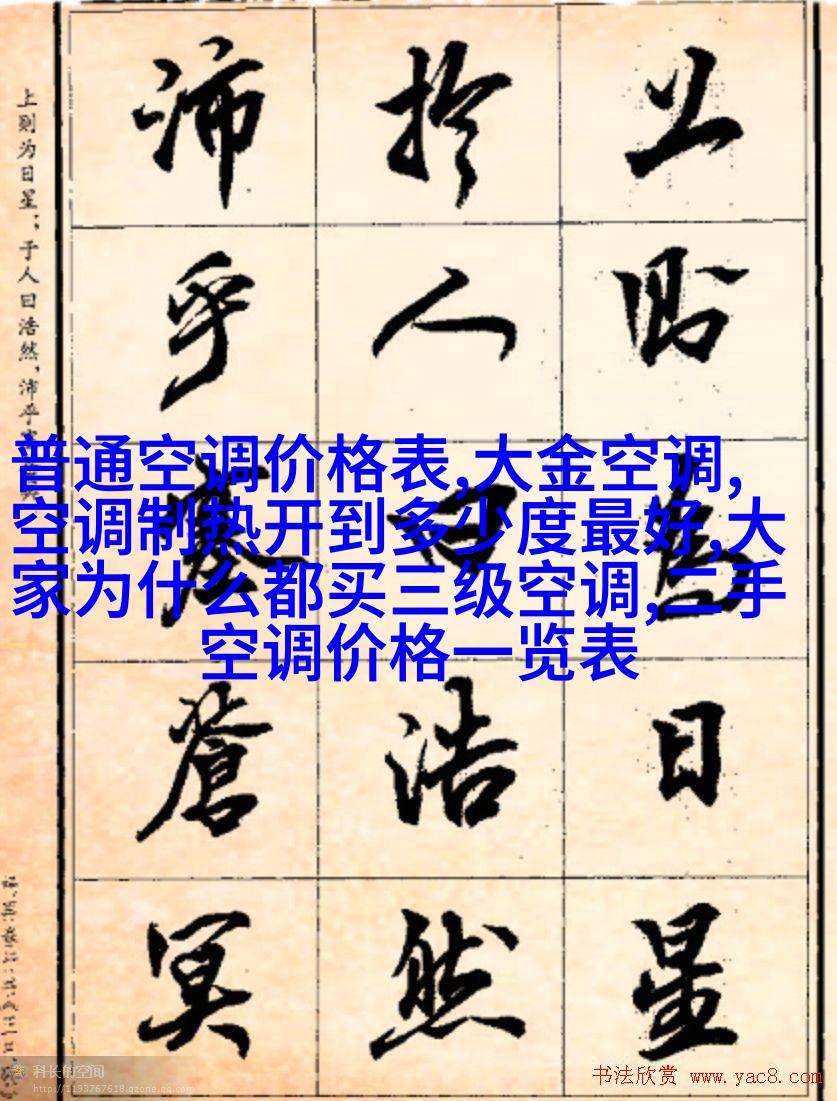 上則為日星
於人曰浩然
沛乎塞蒼冥
上则为日星；于人曰浩然，沛乎
普通空调价格表,大金空调,
空调制热开到多少度最好,大
家为什么都买三级空调,二手
空调价格一览表
科长的空间
http://1193767618.qzone.qq.com
书法欣赏 www.yac8.com